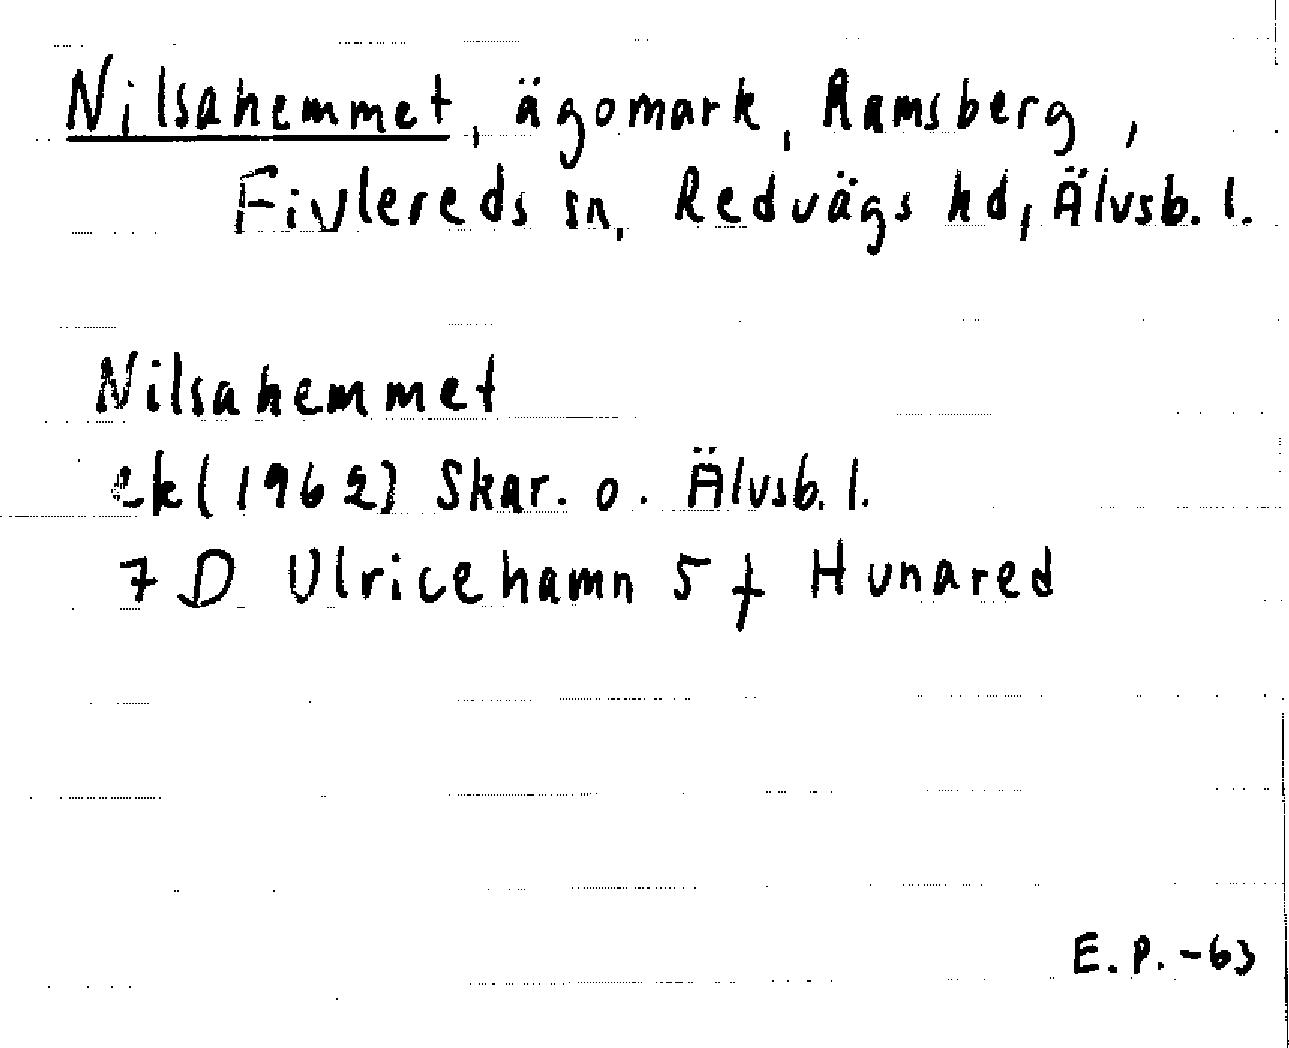 Nilsahemmet, ägomark, Ramsberg,
Fivlereds sn, Redvägs hd, Älvsb. l.
Nilsahemmet
ek (1962) Skar. o. Älvsb. l.
7 D Ulricehamn 5 f Hunared
E. P. -63